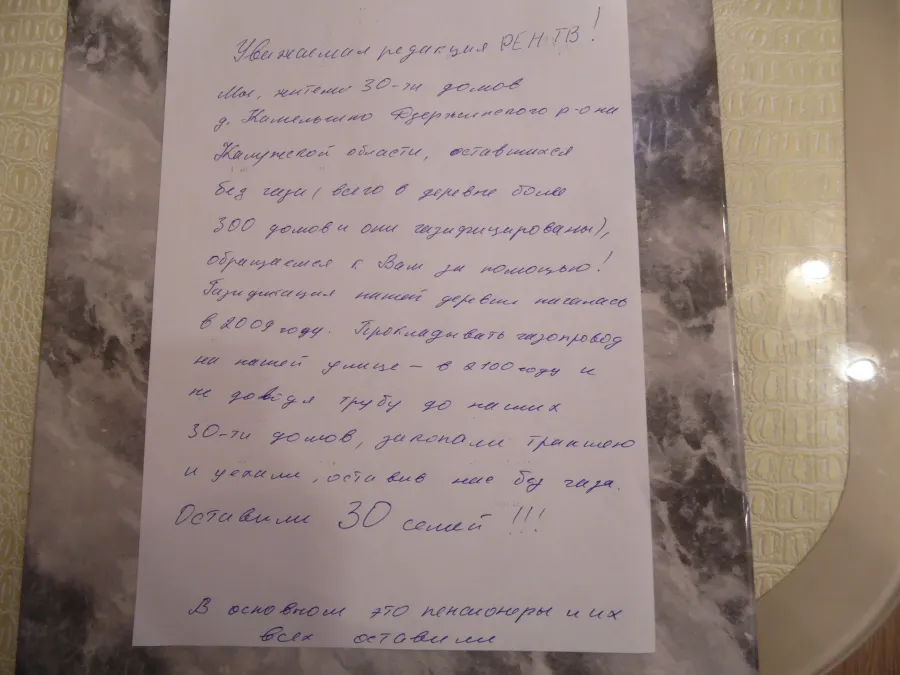 Уважаемая редакция РЕН ТВ!
Мы, жители 30-ти домов
д. Камельгино Дзержинского р-она
Калужской области, оставшихся
без газа (всего в деревне более
300 домов и они газифицированы),
обращаемся к Вам за помощью!
Газификация нашей деревни началась
в 2009 году. Прокладывать газопровод
на нашей улице – в 2100 году и
не доводя трубу до наших
30-ти домов, закопали траншею
и уехали, оставив нас без газа.
Оставили 30 семей !!!
В основном это пенсионеры и их
всех оставили